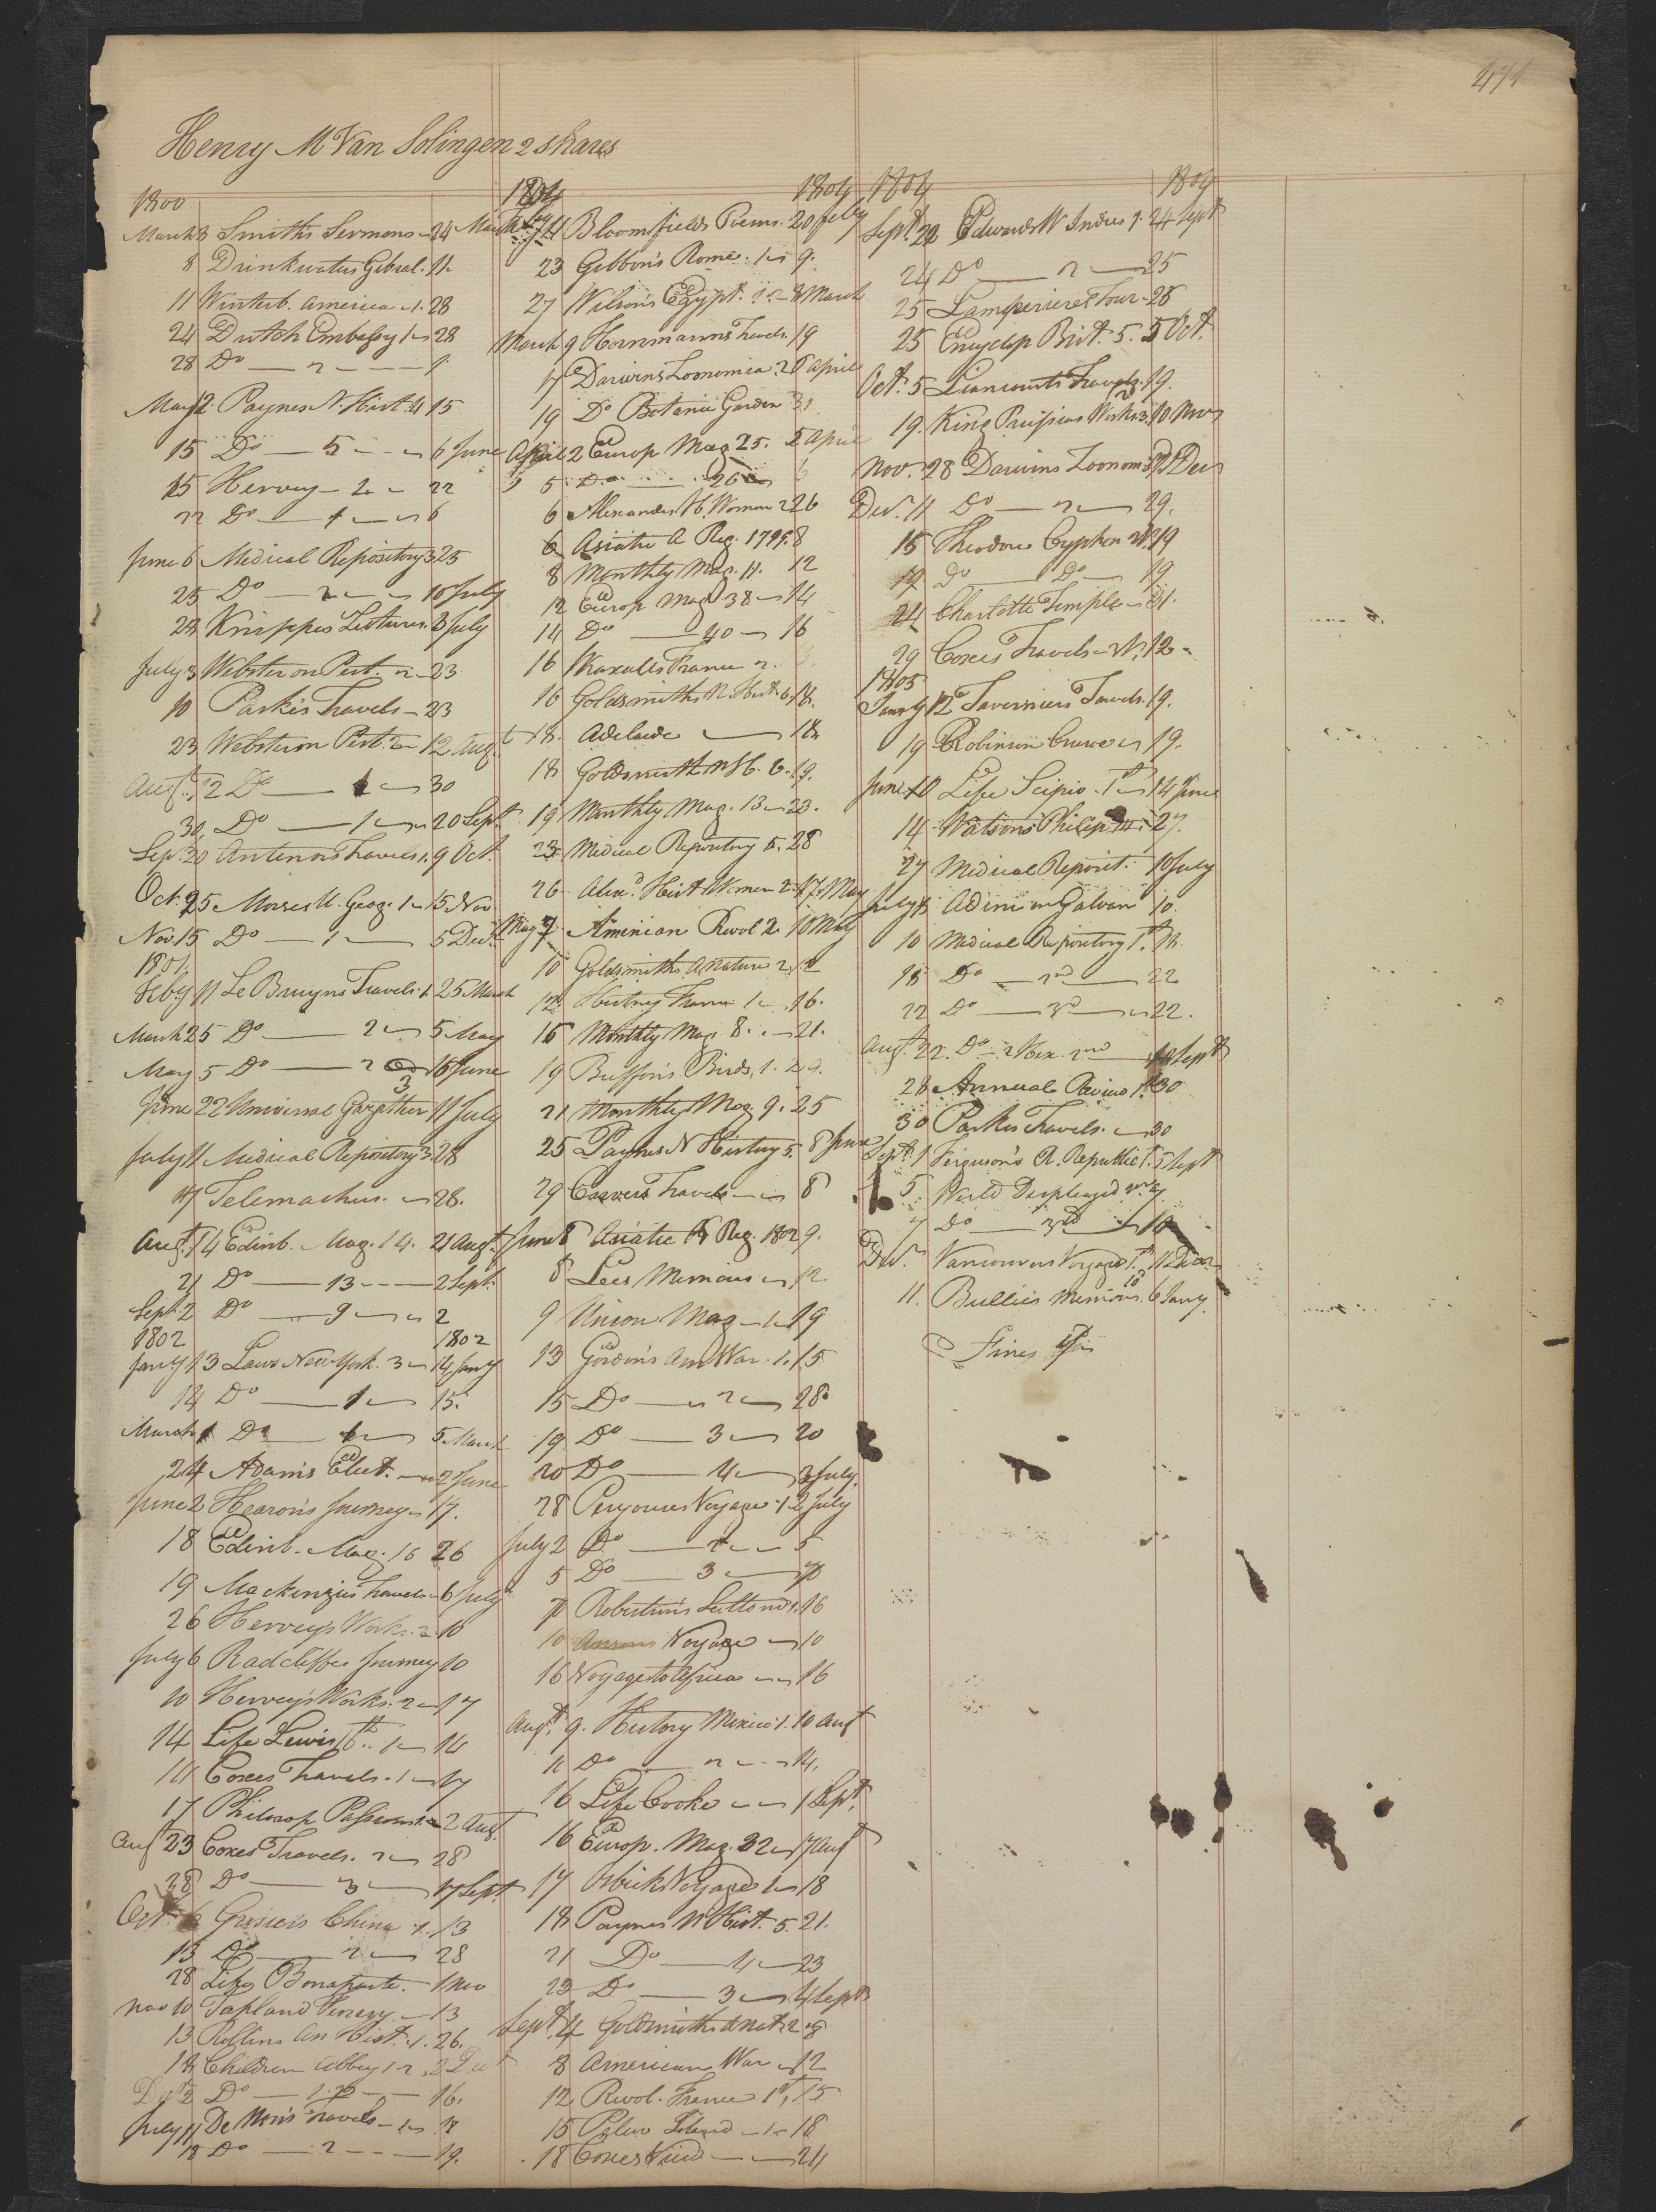 471
Henry M Van Solingen 2 shares
1800
March 8 Smiths Sermons 24 March
8 Drinkwaters Gibral. 11.
11 Winterb. America 1. 28
24 Dutch Embassy 1 28
28 Do 2 1
May 2 Paynes N. Hist. 4 15
15 Do 5 6 June
15 Hervey 2 22
22 Do 1 6
June 6 Medical Repository 3 25
25 Do 2 10 July
28 Knippes Lectures 3 July
July 3 Webster on Pest. 2 23
10 Parkes Travels 23
23 Webster on Pest. 2 12 Augt
Augt. 12 Do 1 30
30 Do 1 20 Sept.
Sep. 20 Antenors Travels 1. 9 Oct.
Oct. 25 Morses U. Geog. 1 15 Nov.
Nov. 15 Do 1 5 Decr.
1801
Feby 11 Le Bruyns Travels 1. 25 March
March 25 Do 2 5 May
May 5 Do 3 16 June
June 22 Universal Gazetteer 11 July
July 11 Medical Repository 3. 28
17 Telemachus. 28.
Augt. 14 Edinb. Mag. 14. 21 Augt.
21 Do 13 2 Sept.
Sept. 2 Do 9 2
1802 1802
Jany 13 Laws New York. 3 14 Jany
14 Do 1 15.
March 1 Do 1 5 March
24 Adams Elect. 2 June
June 2 Hearons Journey 17.
18 Edinb. Mag. 16 26
19 Mackenzies Travels 6 July
26 Herveys Works. 2 10
July 6 Radcliffes Journey 10
10 Herveys Works. 2 17
14 Life Lewis 16th. 1 14
14 Coxes Travels. 1 17
17 Philosop Passions 1. 2 Augt.
Aug 23 Coxes Travels. 2 28
28 Do 3 17 Sept.
Oct. 6 Grosiers China 1. 13
13 Do 2 28
28 Life Bonaparte. 1 Nov
Nov 10 Tapland Venery 13
13 Rollins An Hist. 1. 26.
18 Children Abbey 1 2. 2 Dect
Dec 2 Do 1. 2 16.
July 11 De Non's Travels 1 18
18 Do 2 19.
1804 1804
Feby 14 Bloomfields Poems. 20 Feby
23 Gibbon's Rome. 1 9.
27 Wilson's Egypt. 1 8 March
March 9 Hornmanns Travels. 19
17 Darwins Zoonomia. 2 6 April
19 Do Botanic Garden 31
April 2 Europ Mag 25. 5 April
5 Do 26 6
6 Alexanders H. Woman 2 26
6 Asiatic A Reg. 1799. 8
8 Monthly Mag. 11. 12
12 Europ Mag 38 14
14 Do 40 16
16 Wraxalls France 2.
16 Goldsmiths N. Hist. 6. 18.
18. Adelaide 18
18 Goldsmith N H. 6. 19.
19 Monthly Mag. 13 23.
23 Medical Repository 5. 28
26 Alexd. Hist Women 2. 17. May
May 7 Aminian Revol 2. 10 May
10 Goldsmiths A. Nature 2. 12
12. History France 1 16.
16 Monthly Mag 8. 21.
19 Buffon's Birds, 1. 21.
21 Monthly Mag. 9. 25
25 Paynes N History 5. 8 June
29 Carvers Travels 8
June 8 Asiatic A Reg. 1802 9.
8 Lees Memoirs 12
9 Union Mag 1. 19
13 Gordon's Am War. 1. 15
15 Do 2 28
19 Do 3 20
20 Do 4 2 July.
28 Peryouses Voyage 1. 2 July
July 2 Do 2 5
5 Do 3 7
7 Robertson's Scotland 1. 16
10 Ansons Voyage 10
16 Voyage to Africa 16
Augt. 9. History Mexico 1. 10 Augt
11 Do 2 14.
16 Life Cooke 1 Sept.
16 Europ. Mag. 32 17 Augt
17 Osbeck's Voyage 1 18
18 Paynes N Hist. 5. 21.
21 Do 4 23
23 Do 3 4 Sept.
Sept 4 Goldsmiths A Nat. 2 8
8 American War 12
12 Revol. France 1st. 15
15 Pelew Island 1 18
18 Coxes View 24
1804 1804
Sept. 22 Edwards W Indies 1. 24 Sept
24 Do 2 25
25 Lamperieres Tour 25
25 Encyclop Brit. 5. 5 Oct.
Oct. 5 Liancourts Travels 2 19.
19. King Prussias Works 3. 10 Nov
Nov. 28 Darwins Zoonom. 1st 11 Decr
Dec. 11 Do 2 29.
15 Theodore Cyphon 2d. 19
19 Do Do 19
24 Charlotte Temple 31.
29 Coxes Travels 2d. 12
1805
Jany 12 Taverniers Travels. 19.
19 Robinson Crusoe 19.
June 10 Life Scipio 1st 14 June
14 Watsons Philip 27.
27 Medical Reposit. 10 July
July 5 Adini on Galvan 10.
10 Medical Repository 1st. 18.
18 Do 2nd 22
22 Do 3d 22.
Augt. 22. Do 2 Hex. 2nd 10 Sept
28 Annual Review 1st 30
30 Parkes Travels. 30
Sept. 1 Ferguson's R. Republic 1. 5 Sept
5. World Displayed 2nd 7
7 Do 3rd 10
Decr. Vancouvers Voyage 1st. 11 Decr.
11. Bullies Memoirs. 6 Jany.
Fines